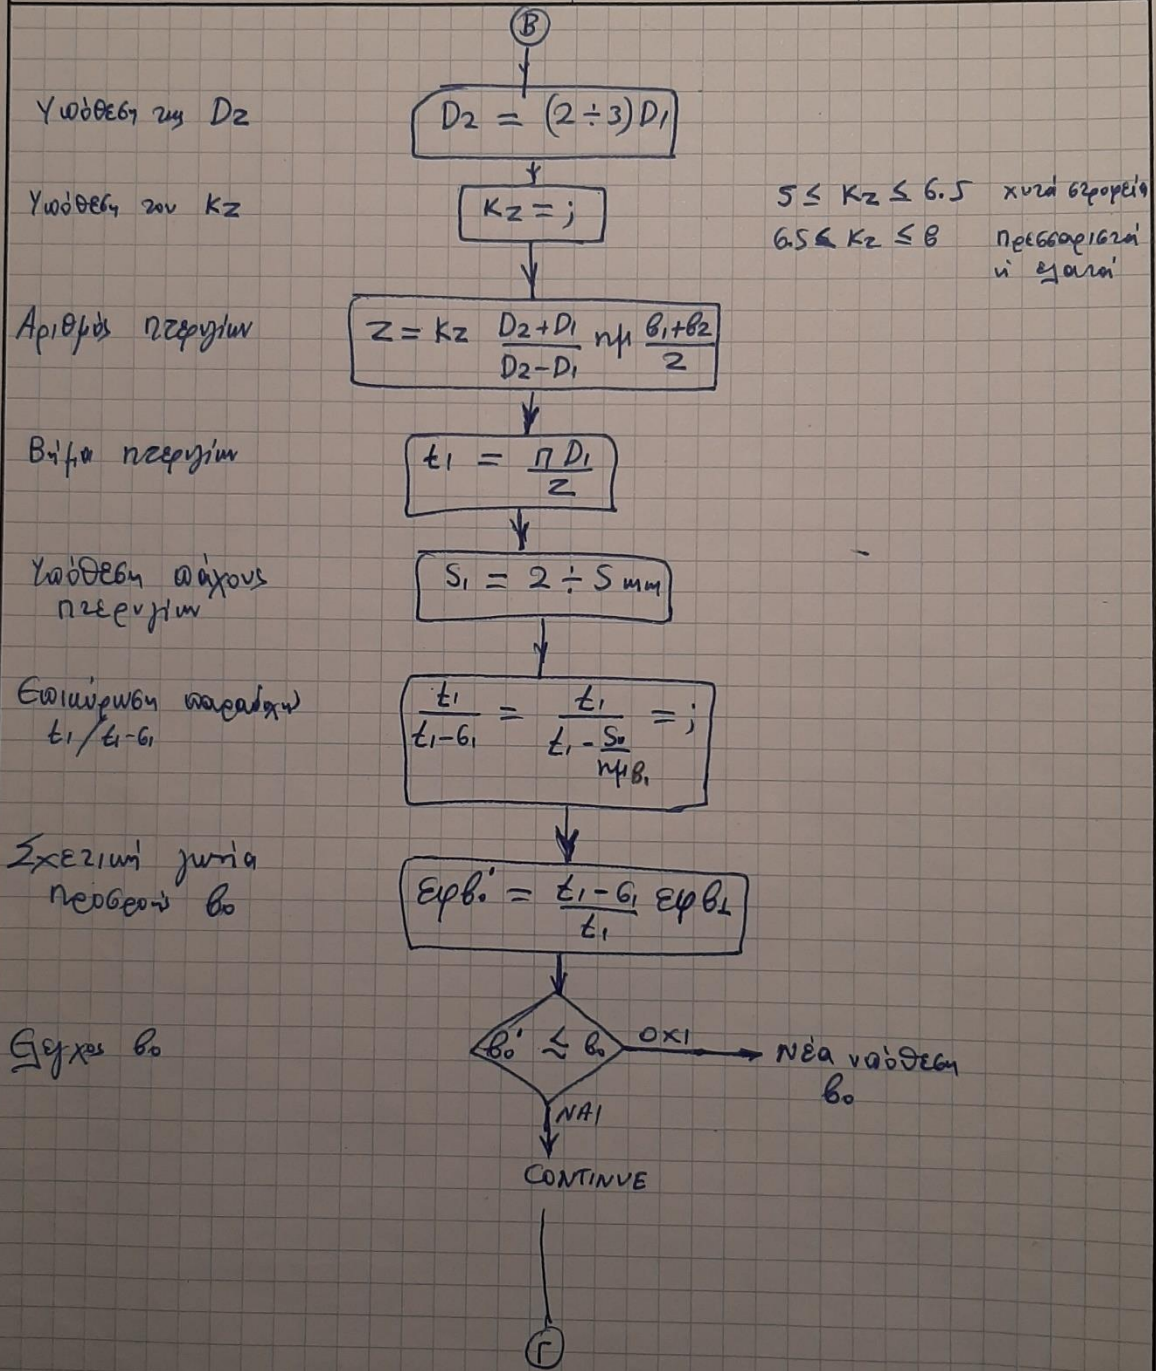 B
Υπόθεση της D2
D2 = (2÷3) D1
Υπόθεση του Kz
Kz = ;
5 ≤ Kz ≤ 6.5 χυτά στροφεία
6.5 ≤ Kz ≤ 8 πρεσσαριστά
ή ελατά
Αριθμός πτερυγίων
Z = Kz (D2+D1)/(D2-D1) ημ (β1+β2)/2
Βήμα πτερυγίων
t1 = π D1 / Z
Υπόθεση πάχους
πτερυγίων
S1 = 2 ÷ 5 mm
Επικύρωση παραδοχών
t1/t1-σ1
t1/(t1-σ1) = t1/(t1 - S0/ημβ1) = ;
Σχετική γωνία
προσροής β0
εφβ0' = (t1-σ1)/t1 εφβ1
Έλεγχος β0
β0' ≤ β0
ΟΧΙ
Νέα υπόθεση
β0
ΝΑΙ
CONTINUE
Γ